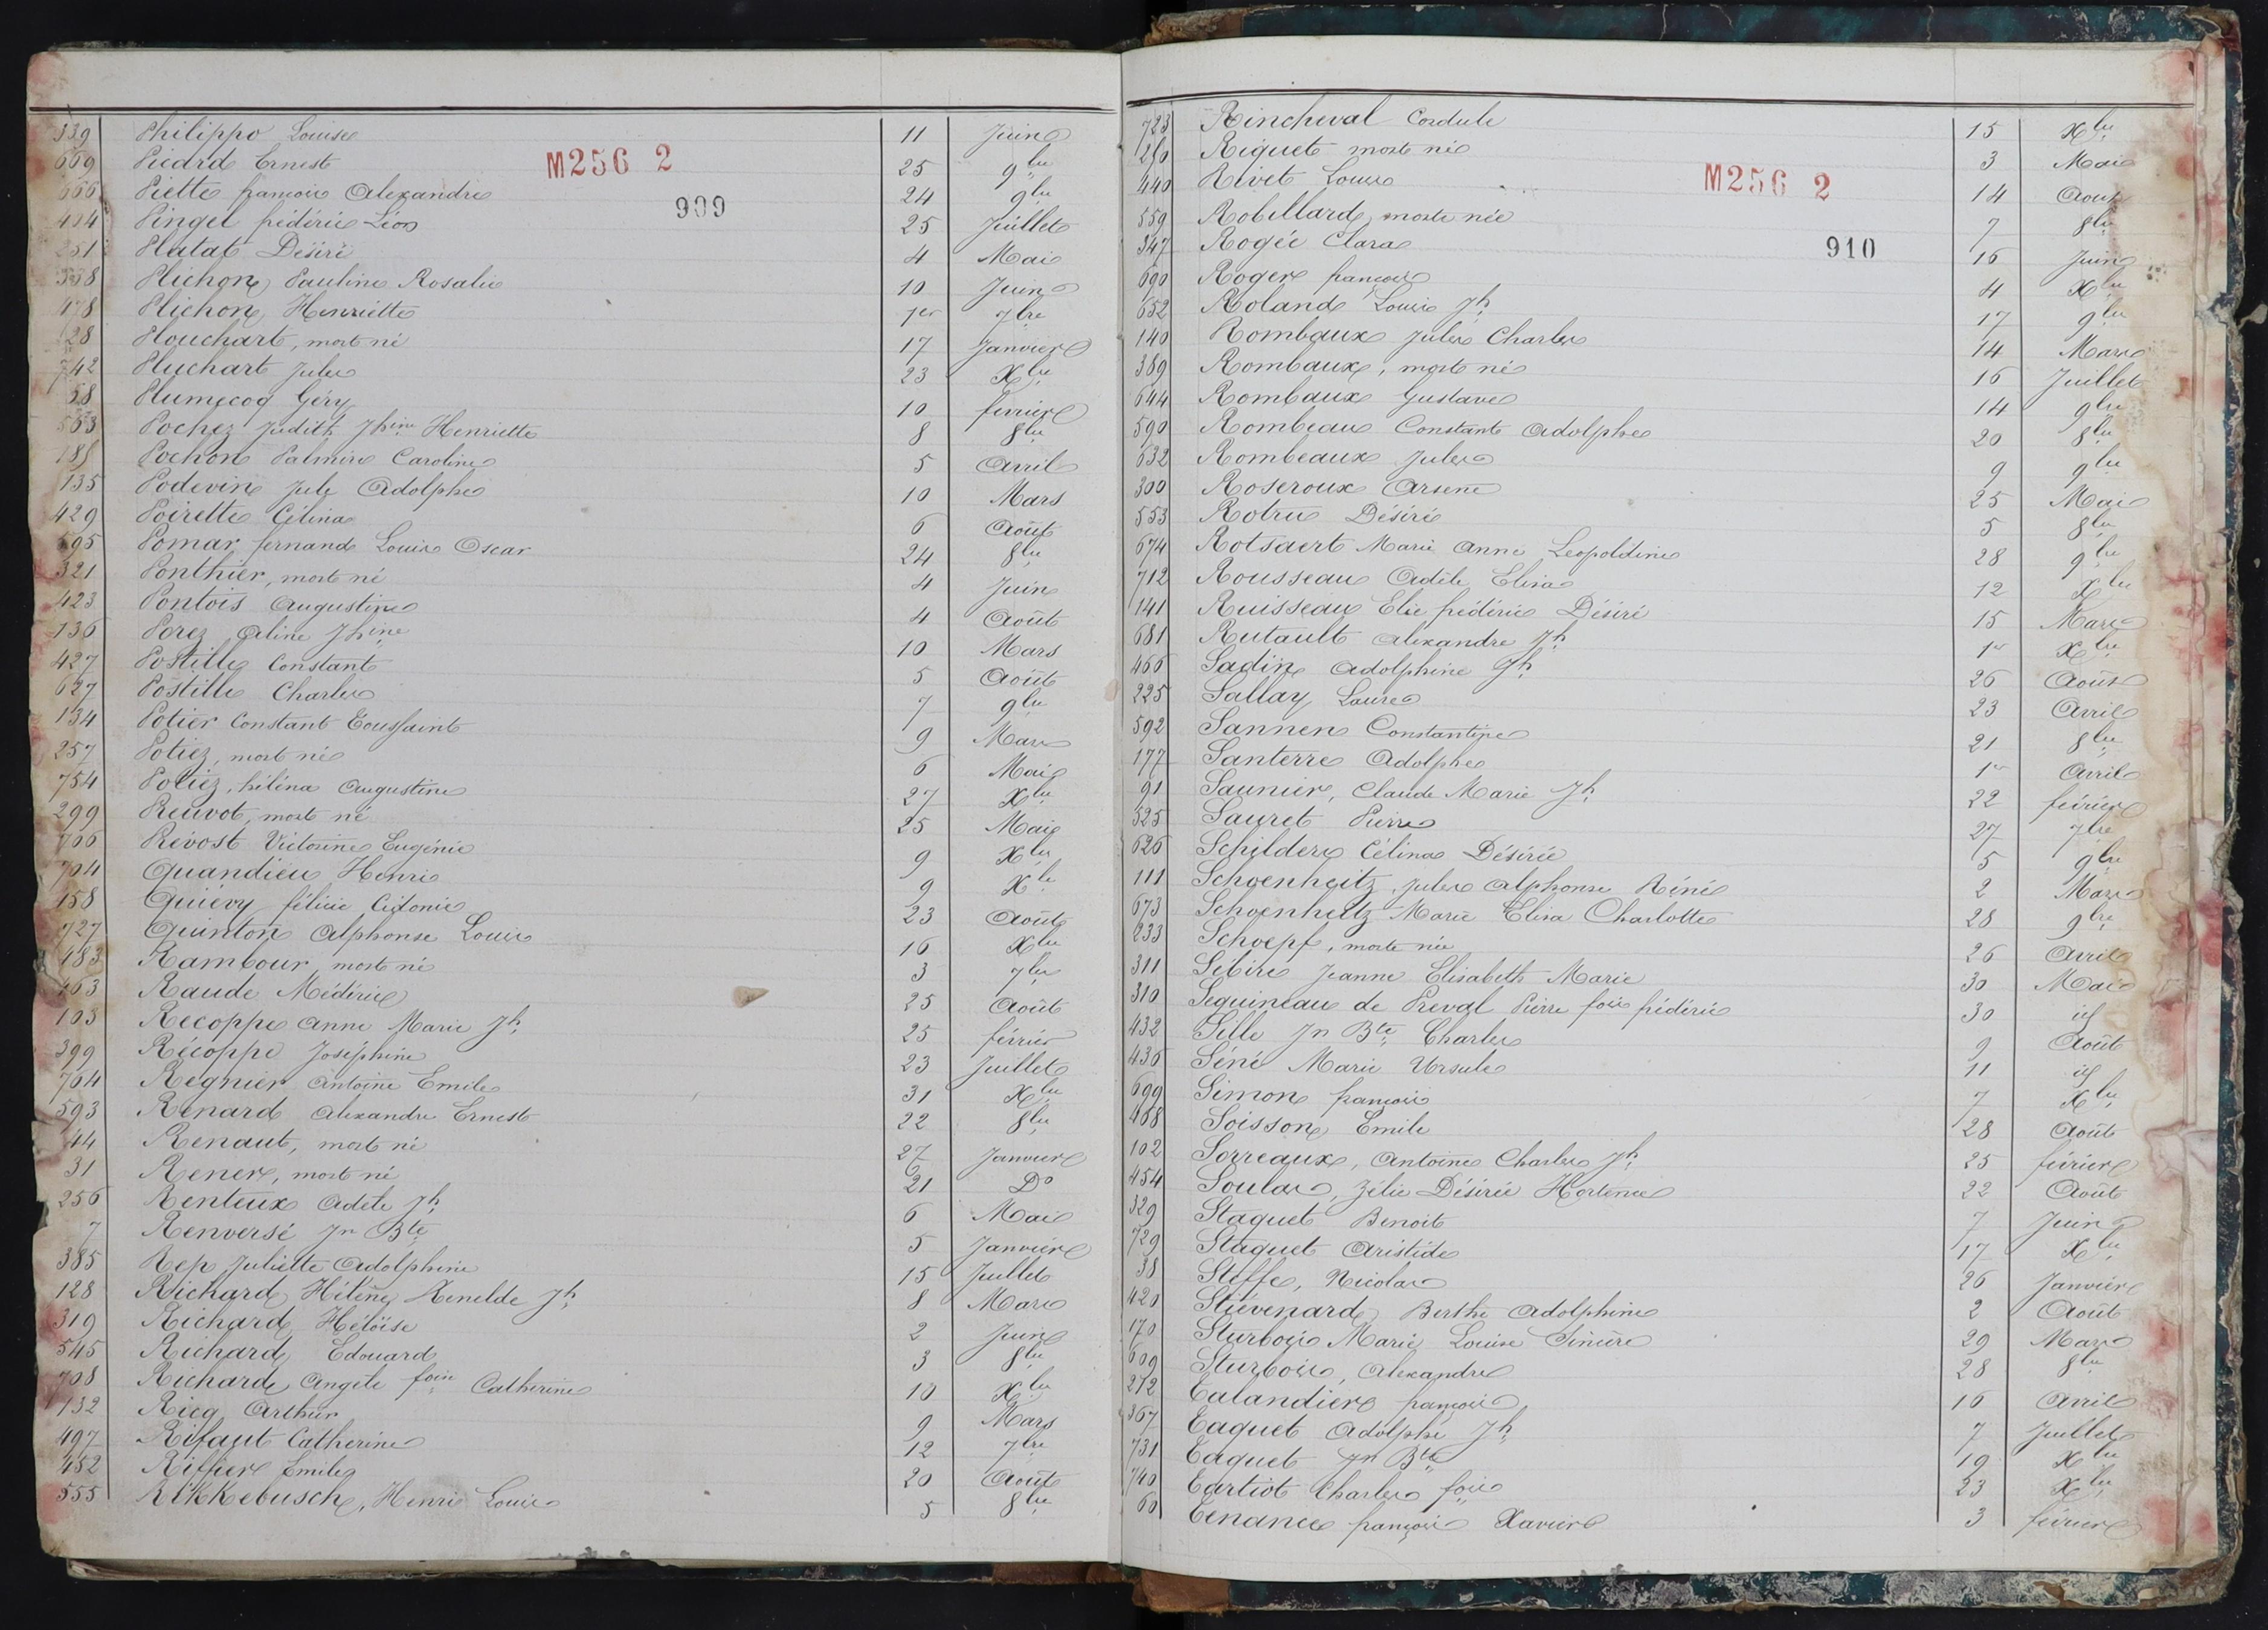 339 Philippo Louise 11 Juin
669 Picard Ernest 25 9bre
M256 2
666 Piette françois Alexandre 24 9bre
909
404 Pingel frédéric Léon 25 Juillet
251 Platat Désiré 4 Mai
338 Plichon Pauline Rosalie 10 Juin
478 Plichon Henriette 1er 7bre
28 Plouchart, mort né 17 Janvier
742 Pluchart Jules 23 Xbre
58 Plumecoq Géry 10 février
563 Pochez Judith Jhine Henriette 8 8bre
185 Pochon Palmire Caroline 5 Avril
135 Podevin Jules Adolphe 10 Mars
429 Poirette Célina 6 Août
595 Pomar fernand Louis Oscar 24 8bre
321 Ponthier, mort né 4 Juin
423 Pontois Augustine 4 Août
136 Porez Aline Jhine 10 Mars
427 Postille Constant 5 Août
627 Postille Charles 7 9bre
134 Potier Constant Toussaint 9 Mars
257 Potiez, mort né 6 Mai
754 Potiez, héléna Augustine 27 Xbre
299 Preuvot, mort né 25 Mai
706 Prévost Victorine Eugénie 9 Xbre
704 Quandieu Henri 9 Xbre
458 Quiévy félicie Cidonie 23 Août
727 Quinton Alphonse Louis 16 Xbre
483 Rambour mort né 3 7bre
463 Raude Médéric 25 Août
103 Recoppe Anne Marie Jh 25 février
399 Récoppe Joséphine 23 Juillet
764 Regnier Antoine Emile 31 Xbre
593 Renard Alexandre Ernest 22 8bre
44 Renaut, mort né 27 Janvier
31 Rener, mort né 21 Do
256 Renteux Adèle Jh 6 Mai
7 Renversé Jn Bte 5 Janvier
385 Rep Juliette Adolphine 15 Juillet
128 Richard Hélène Renelde Jh 8 Mars
319 Richard Héloïse 2 Juin
545 Richard Edouard 3 8bre
708 Richard Angèle foise Catherine 10 Xbre
132 Ricq Arthur 9 Mars
497 Rifaut Catherine 12 7bre
452 Riffier Emile 20 Août
555 Rikkebusch, Henri Louis 5 8bre
723 Rincheval Cordule 15 Xbre
250 Riquet mort né 3 Mai
440 Rivet Louis 14 Août
M256 2
559 Robillard, morte née 7 8bre
347 Rogée Clara 16 Juin
910
690 Roger françois 4 Xbre
652 Roland Louis Jh 17 9bre
140 Rombaux Jules Charles 14 Mars
389 Rombaux, mort né 16 Juillet
644 Rombaux Gustave 14 9bre
590 Rombeau Constant Adolphe 20 8bre
632 Rombeaux Jules 9 9bre
300 Roseroux Arsène 25 Mai
553 Rotru Désiré 5 8bre
674 Rotsaert Marie Anne Léopoldine 28 9bre
712 Rousseau Adèle Elisa 12 Xbre
141 Ruisseau Elie frédéric Désiré 15 Mars
681 Rutault Alexandre Jh 1er Xbre
466 Sadin Adolphine Jh 26 Août
225 Sallay Laure 23 Avril
592 Sannen Constantine 21 8bre
177 Santerre Adolphe 1er Avril
91 Saunier, Claude Marie Jh 22 février
525 Sauret Pierre 27 7bre
626 Schilders Célina Désirée 5 9bre
111 Schoenheitz, Jules Alphonse Réné 2 Mars
673 Schoenheitz Marie Elisa Charlotte 28 9bre
233 Schoepf, morte née 26 Avril
311 Sébire Jeanne Elisabeth Marie 30 Mai
310 Seguineau de Préval Pierre fois frédéric 30 id
432 Sille Jn Bte Charles 9 Août
436 Séné Marie Ursule 11 id
699 Simon françois 7 Xbre
468 Soisson Emile 28 Août
102 Sorreaux, Antoine Charles Jh 25 février
454 Soulas, Zélie Désirée Hortence 22 Août
329 Staquet Benoit 7 Juin
729 Staquet Aristide 17 Xbre
38 Steffe, Nicolas 26 Janvier
420 Stiévenard Berthe Adolphine 2 Août
170 Sturbois Marie Louise Sincère 29 Mars
609 Sturbois, Alexandre 28 8bre
212 Talandier françois 16 Avril
367 Taquet Adolphe Jh 7 Juillet
731 Taquet Jn Bte 19 Xbre
740 Tartiot Charles fois 23 Xbre
60 Tenance françois Xavier 3 février